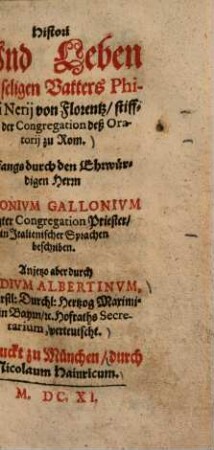 Histori
Und Leben
seligen Vatters Phi-
i Nerij von Florentz/ stiff-
der Congregation deß Ora-
torij zu Rom.
fangs durch den Ehrwür-
digen Herrn
ONIUM GALLONIUM
ter Congregation Priester/
in Italienischer Sprachen
beschriben.
Anjetzo aber durch
DIUM ALBERTINUM,
rstl: Durchl: Hertzog Maximi-
in Bayrn/ ꝛc. Hofraths Secre-
tarium, verteutscht.
uckt zu München/ durch
Nicolaum Hainricum.
M. DC. XI.